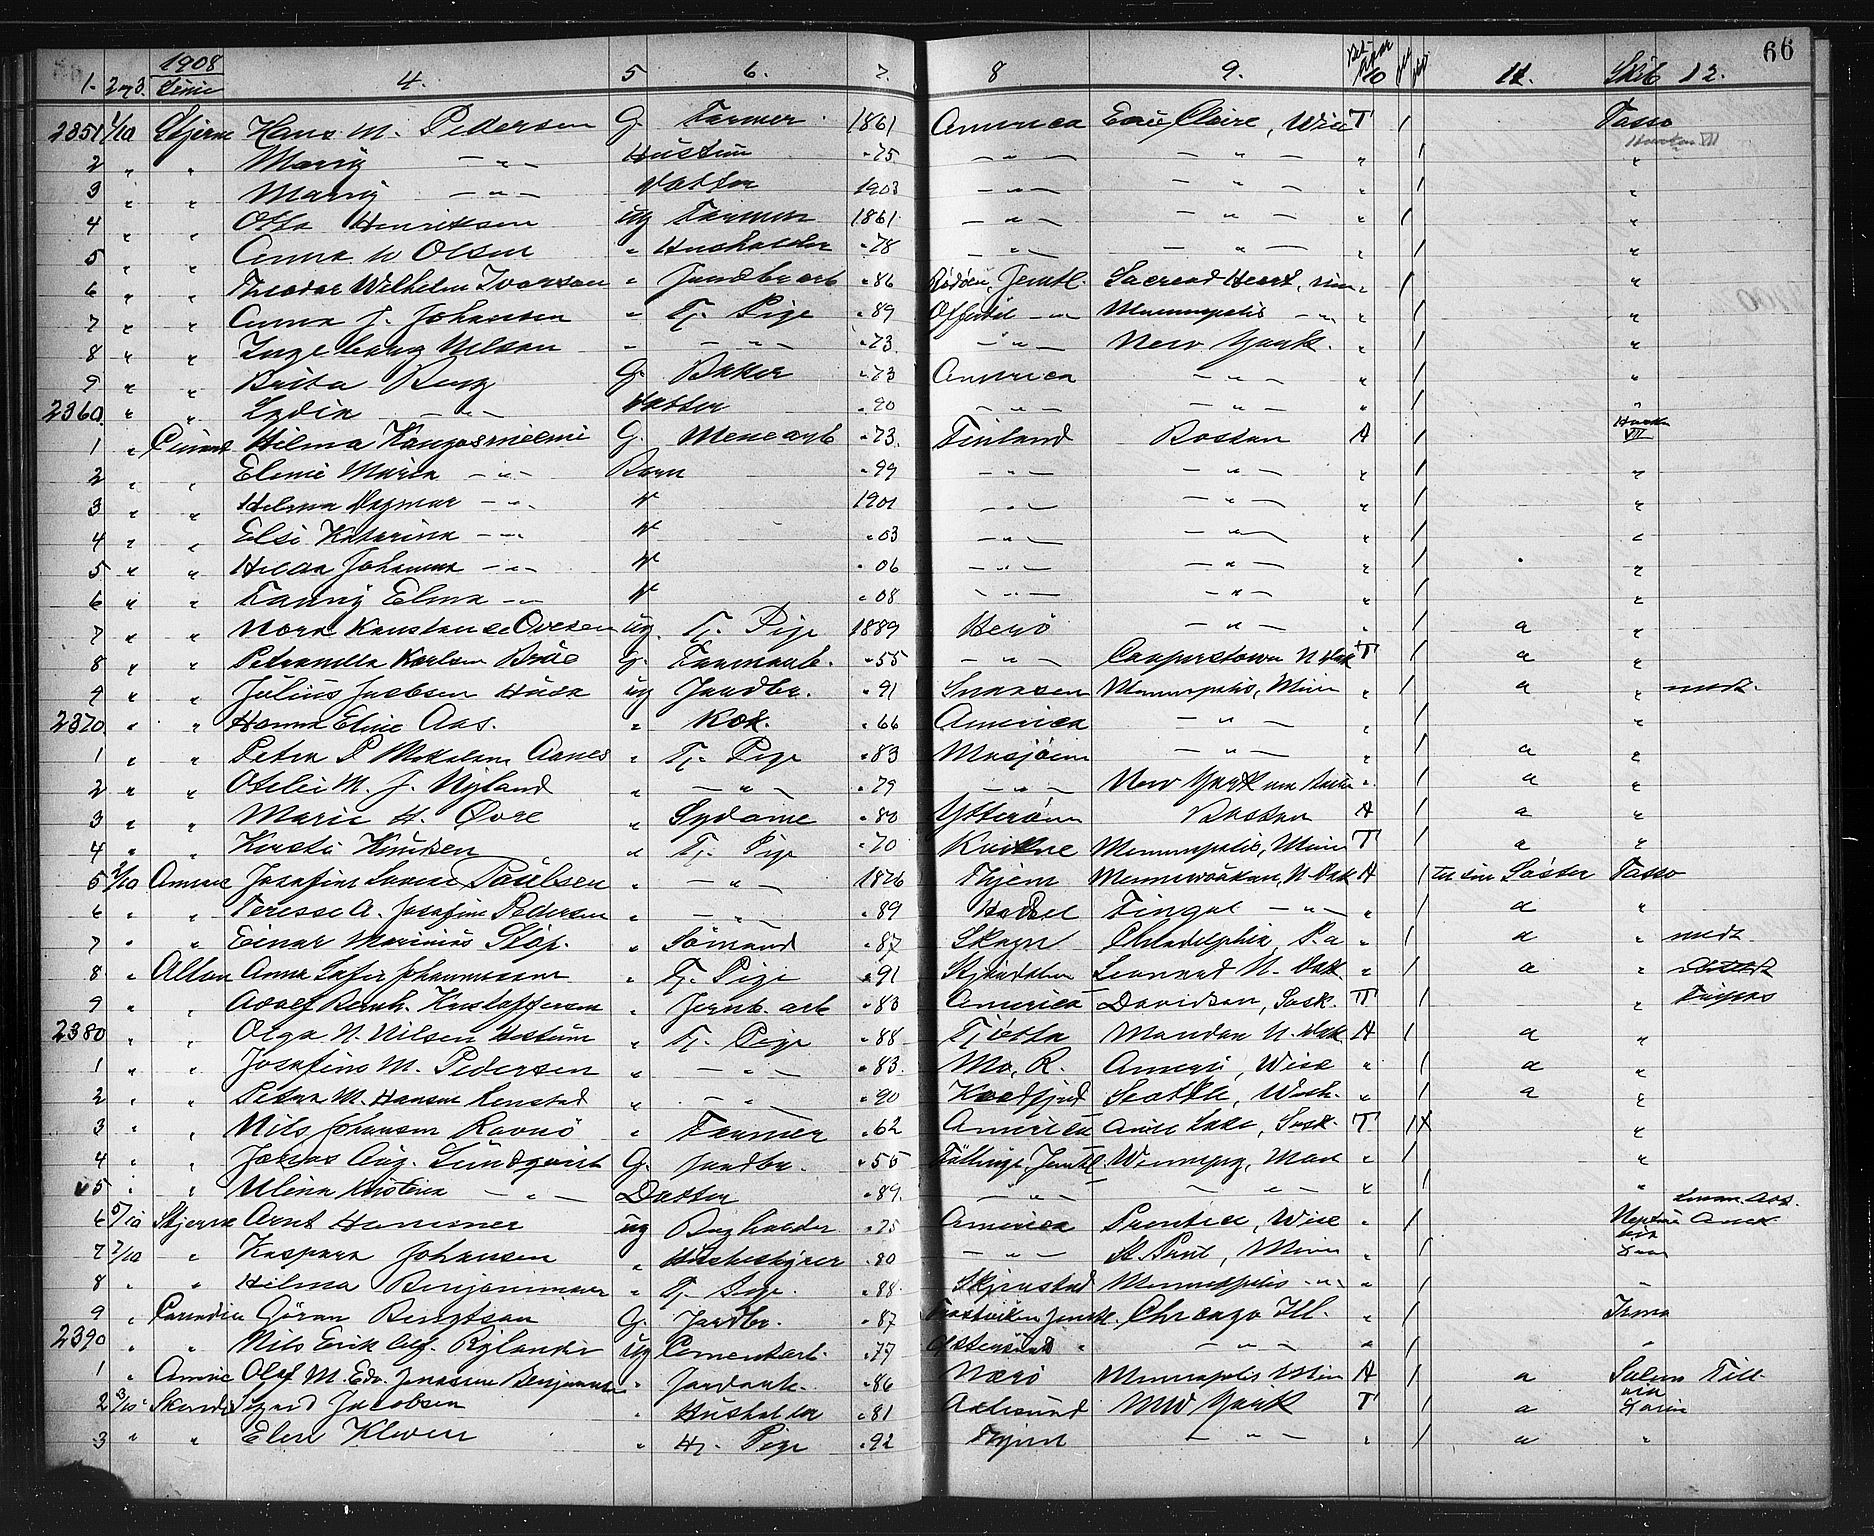 66
1908
1. 2 og 3. Linie 4. 5 6. 7. 8 9. 10 11. Skib 12.
2351 1/10 Stjerne Hans M. Pedersen G. Farmer 1861 America Eau Claire, Wisc T / Tasso
2 " " Marig — " — Hustru " 75 — " — — " — " / "
3 " " Marig — " — Datter 1903 — " — — " — " / "
4 " " Otto Henriksen ug Farmer 1861 — " — — " — " / "
5 " " Anna N Olsen " Husholder " 78 — " — — " — " / "
6 " " Theodor Wilhelm Ivarson " Jordbr arb " 86 Rödöen, Jemtl. Sacread Heart, Min " / "
7 " " Anna J. Johansen " Tj. Pige " 89 Offerdal — " — Minneapolis — " — " / "
8 " " Ingeborg Nelson " — " — " 73 — " — New York. " / "
9 " " Brita Berg G. Baker " 73 America — " — " / "
2360 " " Lydia — " — Datter " 90 — " — — " — " / "
1 " Cunard Hilma Kangasniemi G. Mene arb " 73 Finland Boston A /
2 " " Elmi Maria — " — Barn " 99 — " — — " — " / "
3 " " Helma Dagmar — " — " 1901 — " — — " — " / "
4 " " Elsi Katarina — " — " " 03 — " — — " — " / "
5 " " Hilda Johanna — " — " " 06 — " — — " — " / "
6 " " Fanny Elma — " — " " 08 — " — — " — " / "
7 " " Nora Konstanse Ovesen ug. Tj. Pige 1889 Herö — " — " / a "
8 " " Petronella Karlsen Bråe G. Farmarb. " 55 — " — Cooperstown N Dak T / a "
9 " " Julius Jacobsen ug Jordbr. " 91 Snaasen Minneapolis, Minn " / a " medt.
2370 " " Hanna Eline Aas. " Kok. " 66 America — " — " / "
1 " " Petra P Aanes " Tj. Pige " 83 Mosjöen — " — " / a "
2 " " Otelie M. J. Nyland " — " — " 79 — " — New York " / a "
3 " " Marie H. Øvre " Sydame " 80 Ytterøen Boston A / a "
4 " " Kirsti Knudsen " Tj. Pige " 70 Kvikne Minneapolis, Minn T / a "
5 2/10 Amric Josefine Lovise Paulsen " — " — 1876 Thjem N. Dak A / til sin Söster Tasso
6 " " Teresse A. Josefine Pedersen " — " — " 89 Hadsel Fingal — " — " / a "
7 " " Einar Marinius Støp. " Sömand " 87 Skogn Philadelphia, P.a " / a " medt.
8 " Allan Anna Johannessen " Tj. Pige " 91 Stjördalen Leonard N. Dak. " / a "
9 " " Adolf Bernh. Kristoffersen " Jernb. arb " 83 America Davidson, Sask. T / "
2380 " " Olga N. Nilsen " Tj. Pige " 88 Tjötta Mandan N. Dak A / a "
1 " " Josefine M. Pedersen " — " — " 83. Mo, R. Amery, Wisc " / a "
2 " " Petra M. Hansen Renstad " — " — " 90 Seattle, Wash. " / a "
3 " " Nils Johansen Ravnö " Farmer " 62 America Lake, Sask. T / "
4 " " Jonas Aug. Lundqvist G. Jordbr. " 55 Föllinge Jemtl. Winnepeg, Man " / "
5 " " Ulina Kristina — " — Datter " 89. — " — — " — " / "
6 5/10 Stjerne Arnt Hammer ug " 75 America Prentice, Wisc " /
7 7/10 " Kaspara Johansen " Husbestyrer " 80 — " — St. Paul, Minn " /
8 " " Hilma Benjaminsen " Tj. Pige. " 88. Skjerstad Minneapolis — " — " /
9 " Canadia Göran Bengtson G. Jordbr. " 87 Chicago Ill. " / Irma
2390 " " Nils Erik Alf. Rylander Ug Cementarb. " 77 Östersund " — " — " / "
1 " Amric Olaf M. Edv. Jenssen " Jordarb. " 86 Nærö Minneapolis Minn A / a Salmo Till
2 3/10 Skandia Sigurd Jacobsen " Husholder " 81 Aalesund New York T / a
3 " " Elen Kleven " Hj. Pige " 92 Thjem — " — " / a "